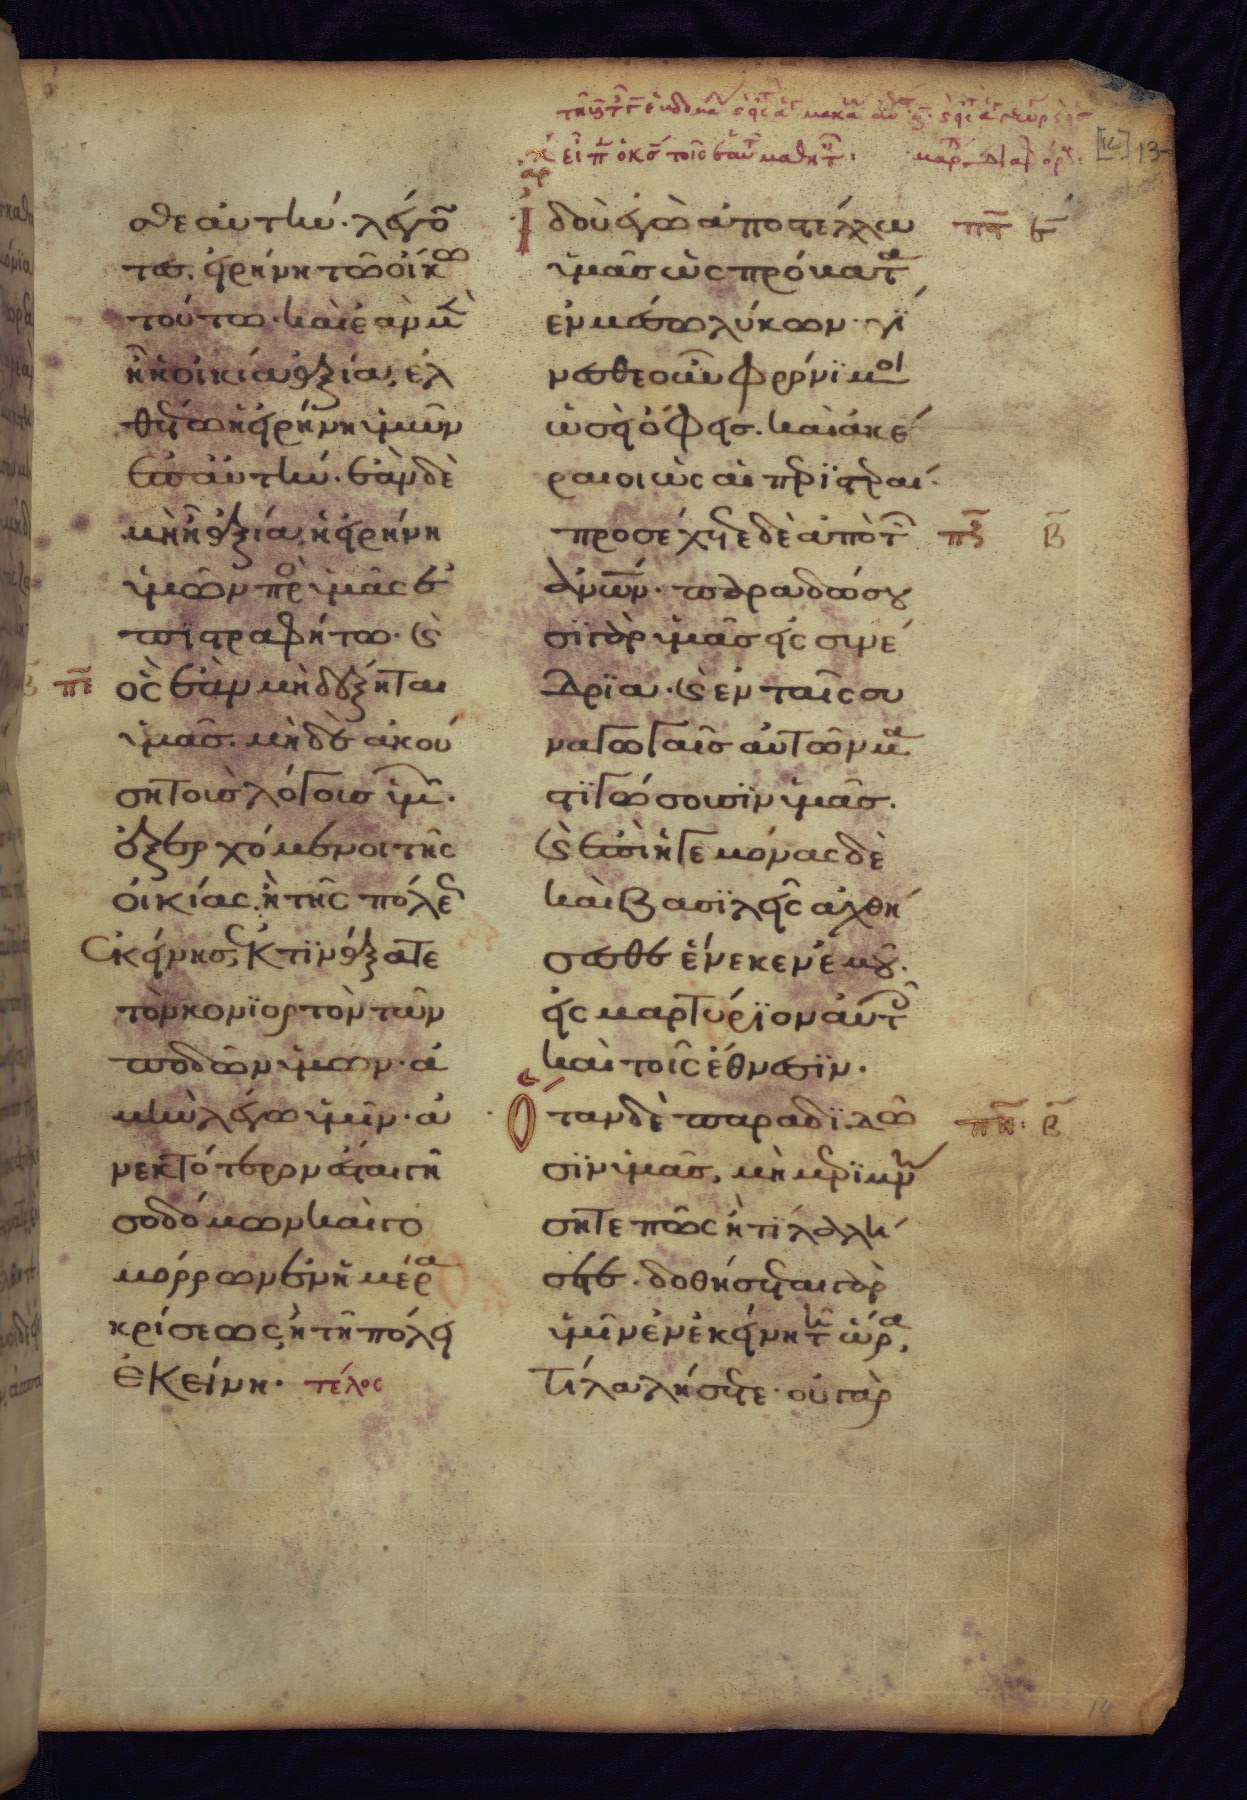 σθε αὐτὴν· λέγο̅
τες, εἰρήνη τῶ οἴκω
τούτω· καὶ ἐὰν μὲν
ἦ ἡ οἰκία ἀξία, ἐλ
θέτω ἡ εἰρήνη ὑμῶν
ἐπ' αὐτήν· ἐὰν δὲ
μὴ ἦ ἀξία, ἡ εἰρήνη
ὑμῶν πρὸ ὑμᾶς ἐ
πιστραφήτω· ϗ
πε ὃς ἐὰν μὴ δέξηται
ὑμᾶς· μὴ δὲ ἀκού
ση τοὺς λόγους ὑμ·
ἐξερχόμενοι τῆς
οἰκίας ἢ τῆς πόλε
ἐκείνης, ἐκτινάξατε
τὸν κονιορτὸν τῶν
ποδῶν ὑμῶν· ἀ
μὴν λέγω ὑμῖν· ἀ
νεκτότερον ἔσται γῆ
σοδόμων καὶ γο
μόρρων ἐν ἡμέρα
κρίσεως, ἢ τῆ πόλει
ἐκείνη· τέλος
εἶπ ὁ κς τοῖς ἑαυτ μαθητ·
Ἰδοὺ ἐγὼ ἀποστέλλω πς
ὑμᾶς ὡς πρόβατα
ἐν μέσω λύκων· γί
νεσθε οὖν φρόνιμοι
ὡς οἱ ὄφεις· καὶ ἀκέ
ραιοι ὡς αἱ περιστεραί·
προσέχετε δὲ ἀπὸ τ πζ β
ανων· παραδώσου
σι γὰρ ὑμᾶς εἰς συνέ
δρια· ϗ ἐν ταῖς συ
ναγωγαῖς αὐτῶν μα
στιγώσουσιν ὑμᾶς·
ϗ ἐπὶ ἡγεμόνας δὲ
καὶ βασιλεῖς ἀχθή
σεσθε ἕνεκεν ἐμοῦ·
εἰς μαρτύριον αὐτ
καὶ τοῖς ἔθνεσιν·
Ὅταν δὲ παραδιδῶ πη· β
σιν ὑμᾶς, μὴ μεριμν
σητε πῶς ἢ τί λαλή
σητε· δοθήσεται γὰρ
ὑμῖν ἐν ἐκείνη τῆ ὥρα,
τί λαλήσετε· οὐ γὰρ